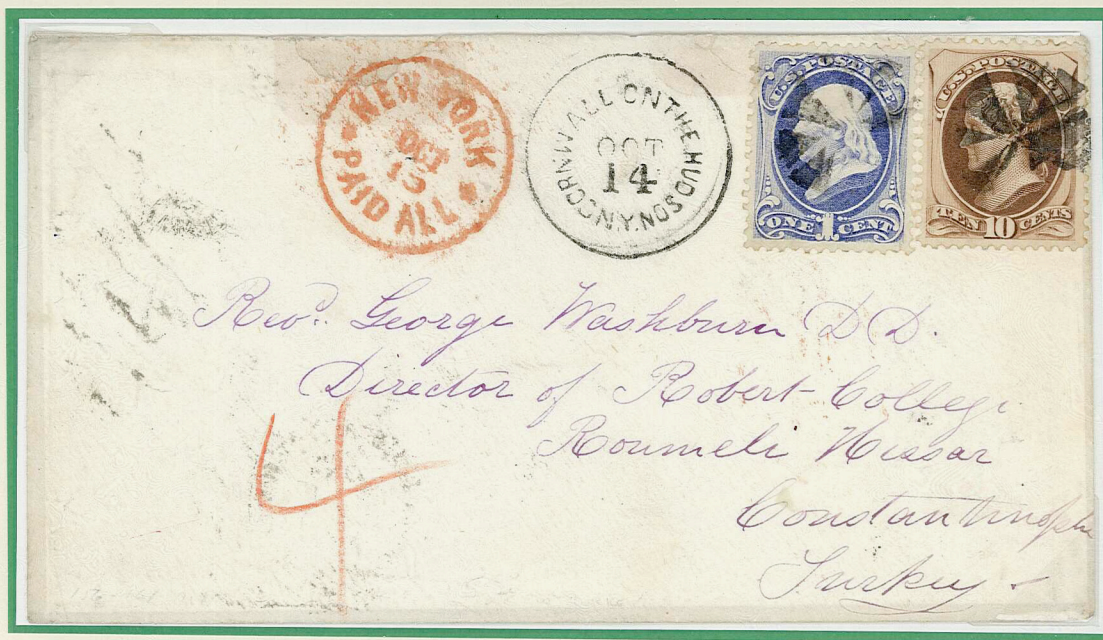 NEW YORK
OCT
15
PAID ALL
CORNWALL ON THE HUDSON N.Y.
OCT
14
U.S. POSTAGE
ONE 1 CENT
U.S. POSTAGE
TEN 10 CENTS
Revd. George Washburn D.D.
Director of Robert College
Roumeli Hissar
Constantinople
Turkey
4